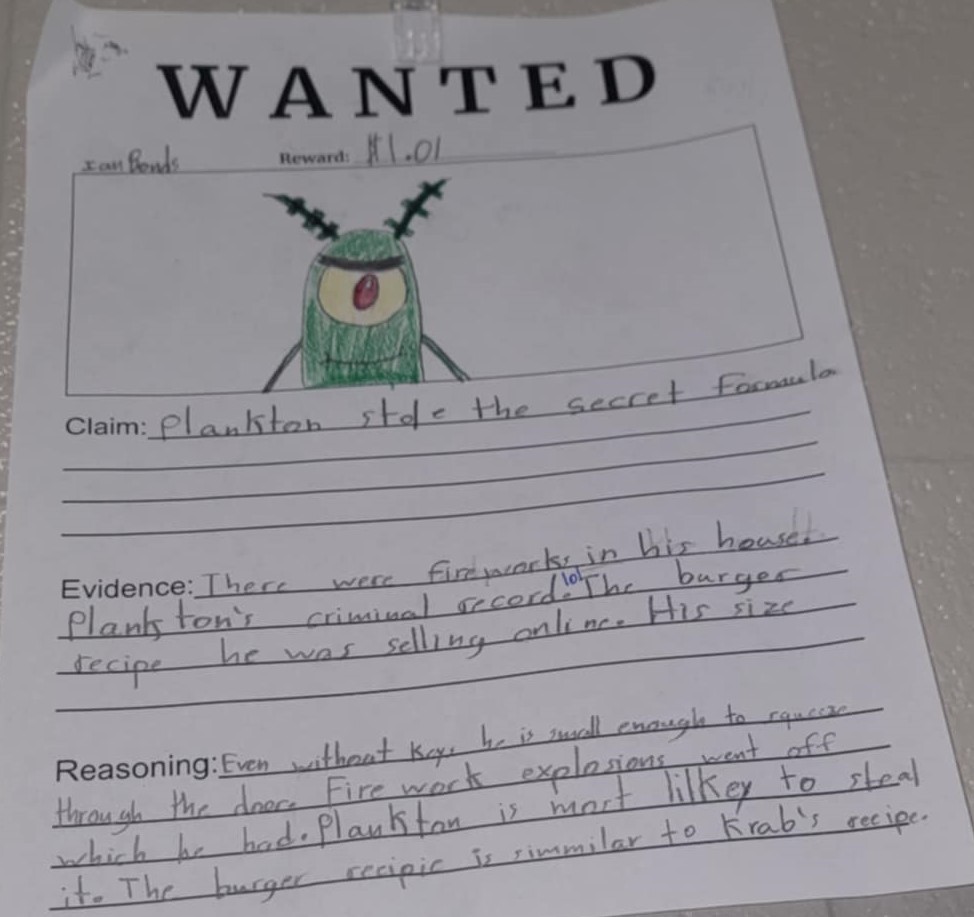 WANTED
Ian Bonds Reward: $1.01
Claim: Plankton stole the secret formula
Evidence: There were fireworks in his house.
Plankton's criminal record. lol The burger
recipe he was selling online. His size
Reasoning: Even without keys he is small enough to squeeze
through the door. Fire work explosions went off
which he had. Plankton is most lilkey to steal
it. The burger recipie is simmilar to Krab's recipe.